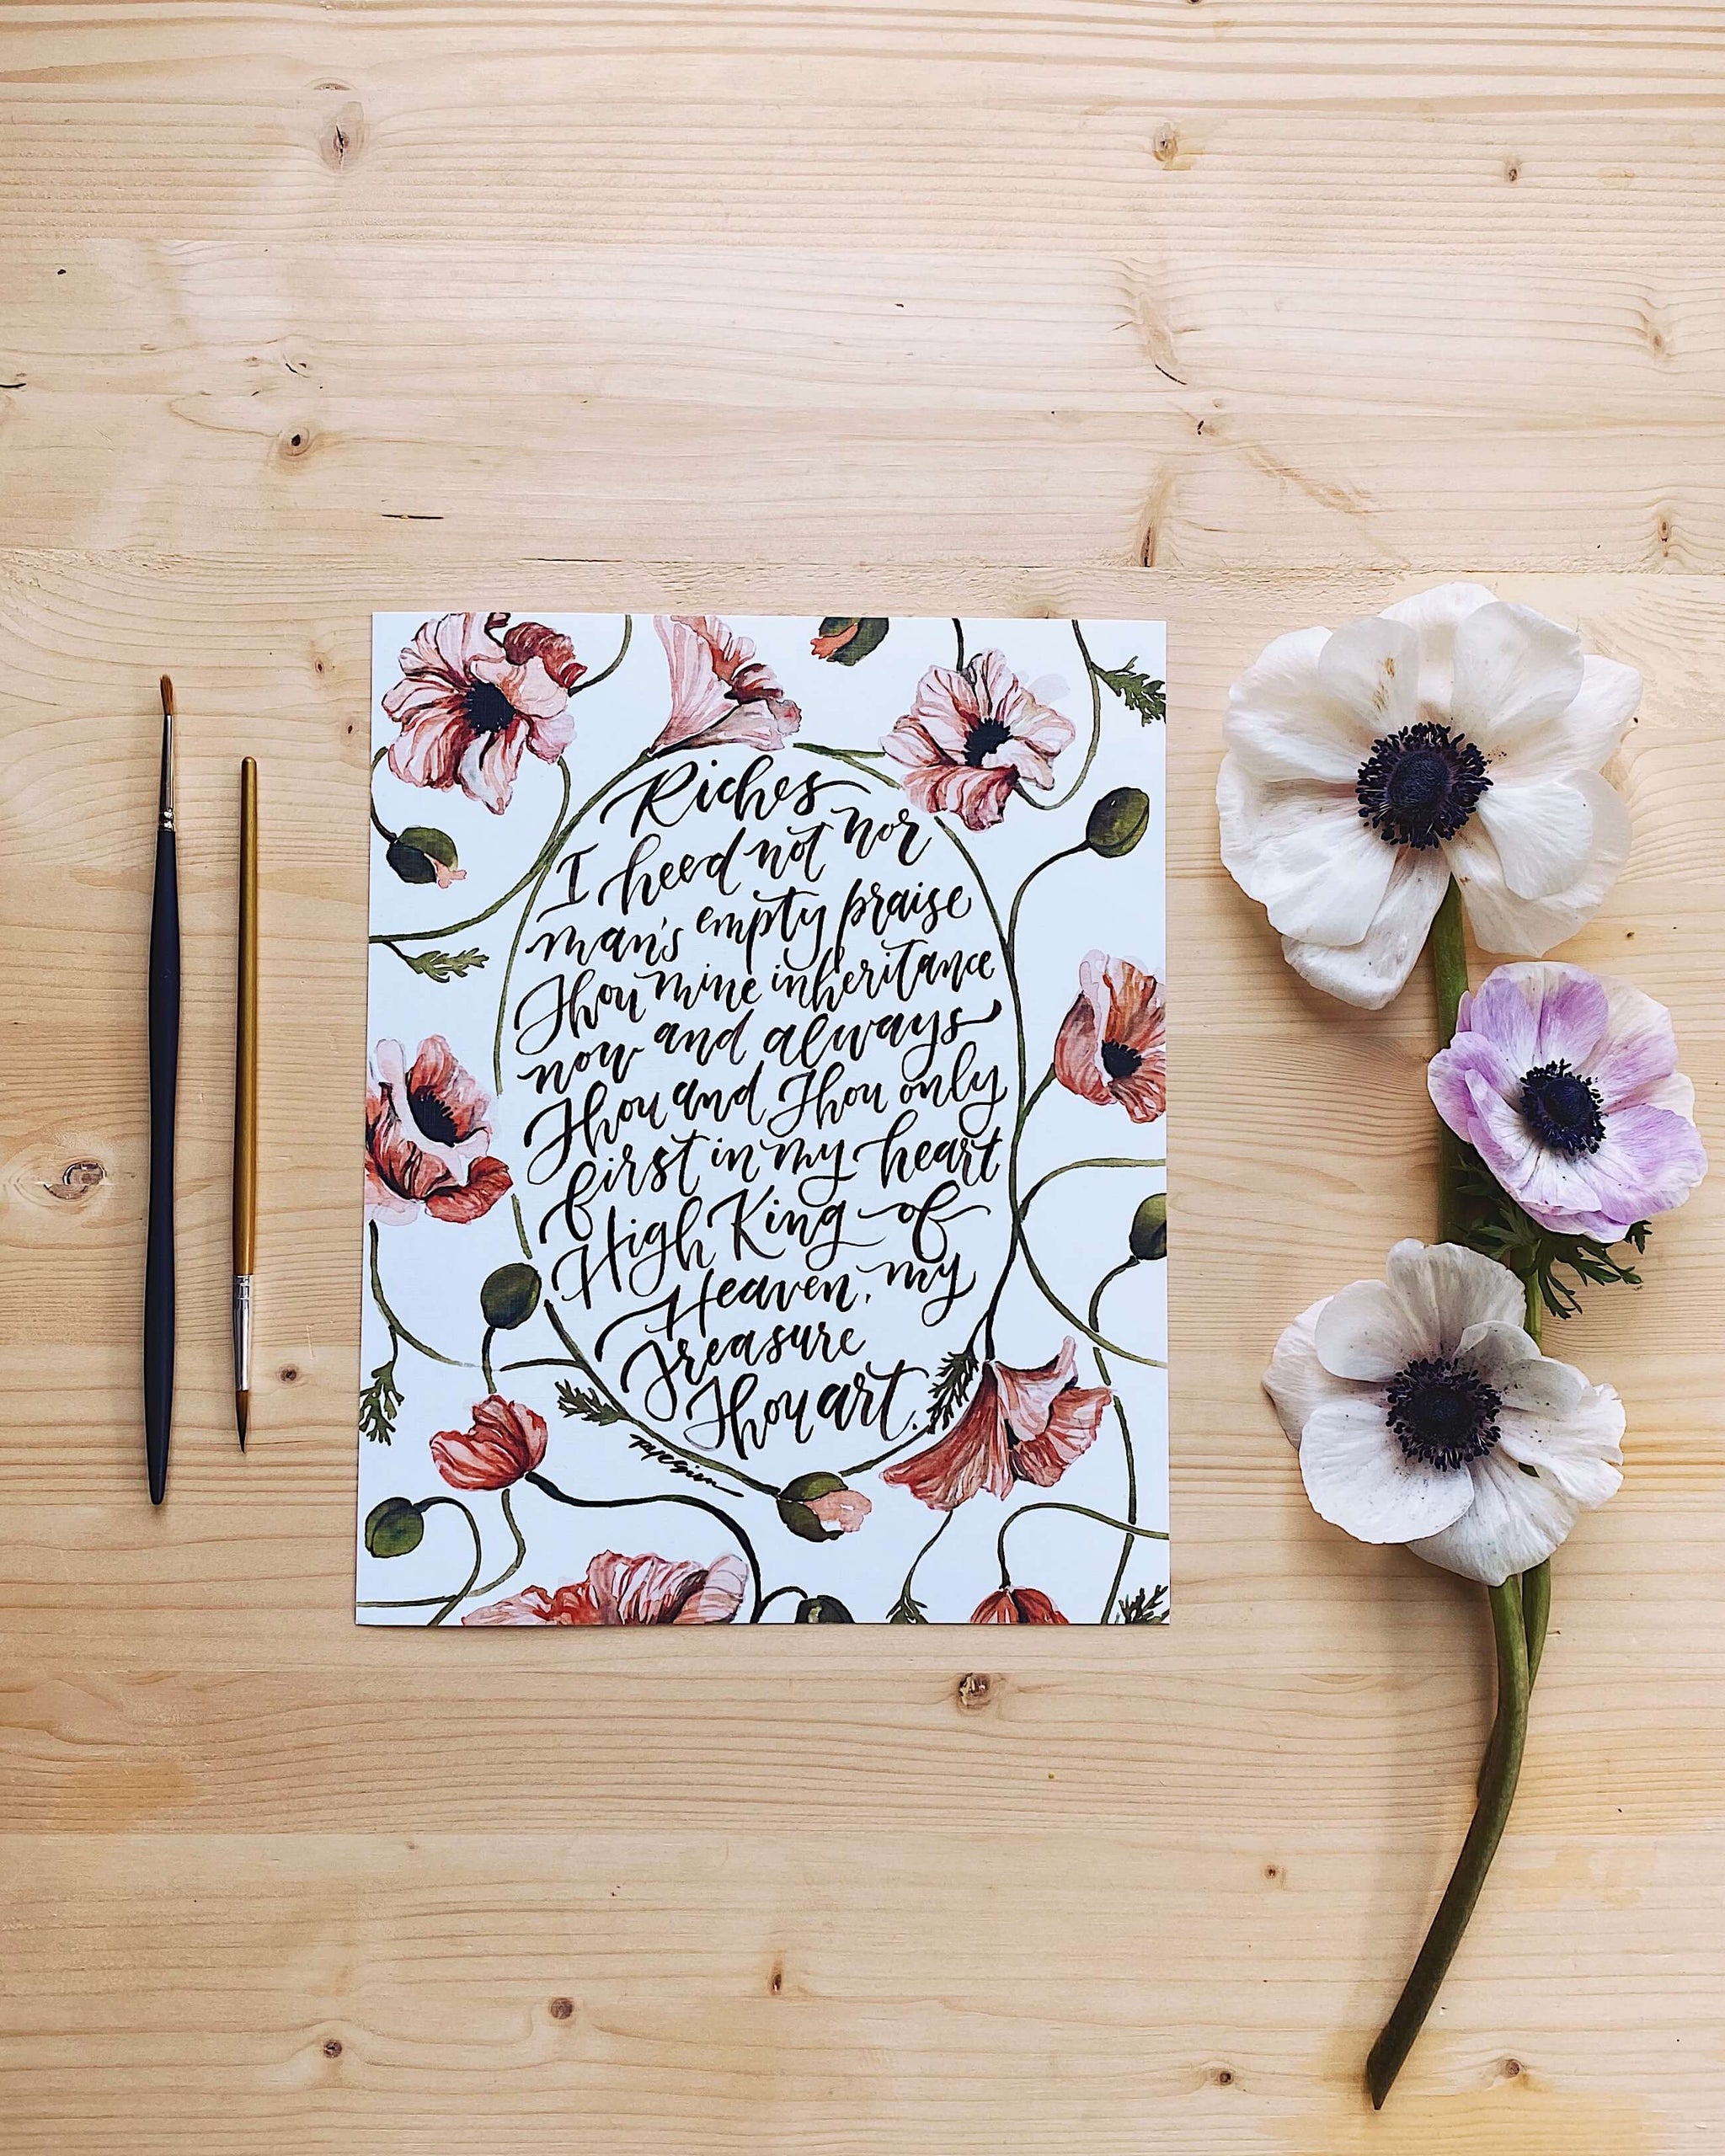 Riches
I heed not nor
man's empty praise
Thou mine inheritance
now and always
Thou and Thou only
first in my heart
High King of
Heaven, my
Treasure
Thou art.